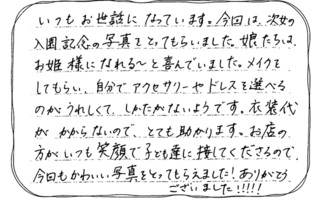 いつもお世話になっています。今回は、次女の
入園記念の写真をとってもらいました。娘たちは、
お姫様になれる〜と喜んでいました。メイクを
してもらい、自分でアクセサリーやドレスを選べる
のがうれしくて、しかたがないようです。衣装代
がかからないので、とても助かります。お店の
方がいつも笑顔で子ども達に接してくださるので、
今回もかわいい写真をとってもらえました!ありがとう
ございました!!!!!